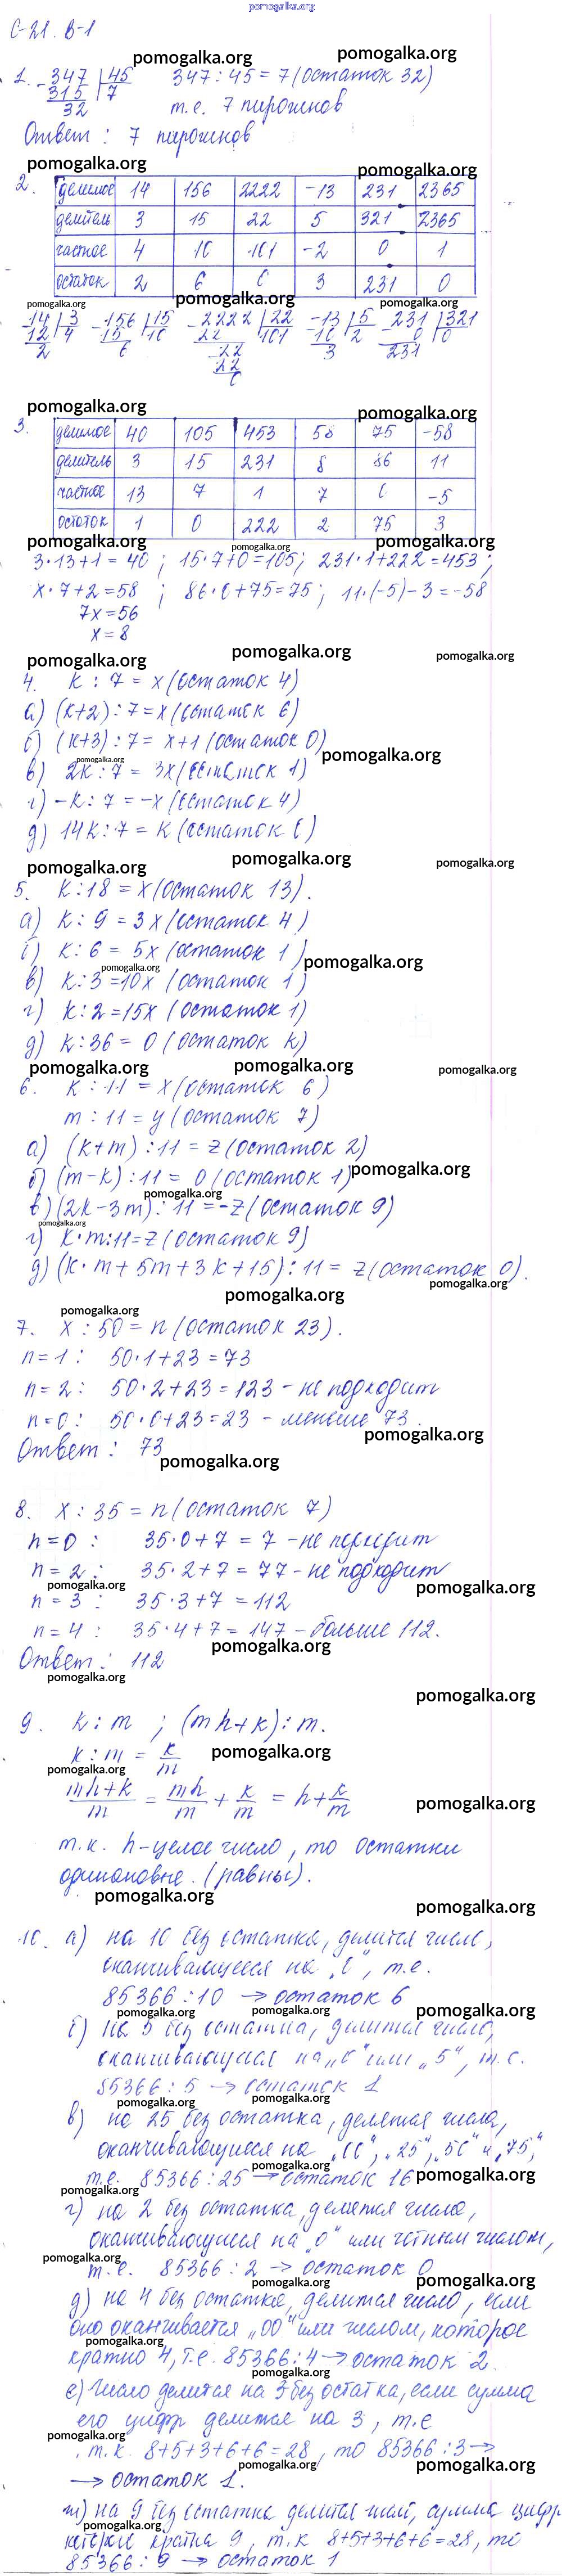 pomogalka.org
С-21. В-1
pomogalka.org pomogalka.org
1. 347 | 45 347 : 45 = 7 (остаток 32)
315 | 7 т.е. 7 пирожков
32
Ответ : 7 пирожков
pomogalka.org pomogalka.org
2. делимое 14 156 2222 -13 231 2365
делитель 3 15 22 5 321 2365
частное 4 10 101 -2 0 1
остаток 2 6 0 3 231 0
pomogalka.org pomogalka.org pomogalka.org
14 | 3 156 | 15 2222 | 22 -13 | 5 231 | 321
12 | 4 15 | 10 22 | 101 10 | 2 0 | 0
2 6 22 3 231
22
0
pomogalka.org pomogalka.org
3. делимое 40 105 453 58 75 -58
делитель 3 15 231 8 86 11
частное 13 7 1 7 0 -5
остаток 1 0 222 2 75 3
pomogalka.org pomogalka.org pomogalka.org
3·13+1 = 40 ; 15·7+0=105; 231·1+222=453;
x·7+2=58 ; 86·0+75=75; 11·(-5)-3=-58
7x=56
x=8
pomogalka.org pomogalka.org pomogalka.org
4. k : 7 = x (остаток 4)
а) (k+2) : 7 = x (остаток 6)
б) (k+3) : 7 = x+1 (остаток 0)
pomogalka.org pomogalka.org
в) 2k : 7 = 3x (остаток 1)
г) -k : 7 = -x (остаток 4)
д) 14k : 7 = k (остаток 0)
pomogalka.org pomogalka.org pomogalka.org
5. k : 18 = x (остаток 13).
а) k : 9 = 3x (остаток 4)
б) k : 6 = 5x (остаток 1)
pomogalka.org pomogalka.org
в) k : 3 = 10x (остаток 1)
г) k : 2 = 15x (остаток 1)
д) k : 36 = 0 (остаток k)
pomogalka.org pomogalka.org pomogalka.org
6. k : 11 = x (остаток 6)
m : 11 = y (остаток 7)
а) (k+m) : 11 = z (остаток 2)
б) (m-k) : 11 = 0 (остаток 1) pomogalka.org
pomogalka.org
в) (2k-3m) : 11 = -z (остаток 9)
pomogalka.org
г) k·m : 11 = z (остаток 9)
д) (k·m + 5m + 3k + 15) : 11 = z (остаток 0).
pomogalka.org
pomogalka.org
pomogalka.org
7. x : 50 = n (остаток 23).
n = 1 : 50·1+23 = 73
n = 2 : 50·2+23 = 123 - не подходит
n = 0 : 50·0+23 = 23 - меньше 73.
pomogalka.org
Ответ : 73
pomogalka.org
8. x : 35 = n (остаток 7)
n = 0 : 35·0+7 = 7 - не подходит
n = 2 : 35·2+7 = 77 - не подходит
pomogalka.org pomogalka.org
n = 3 : 35·3+7 = 112
n = 4 : 35·4+7 = 147 - больше 112.
pomogalka.org
Ответ : 112
pomogalka.org
pomogalka.org
9. k : m ; (mn+k) : m.
k : m = k/m pomogalka.org
pomogalka.org
(mn+k)/m = mn/m + k/m = n + k/m
pomogalka.org
т.к. n - целое число, то остатки
одинаковые. (равны).
pomogalka.org
pomogalka.org
10. а) на 10 без остатка, делится число,
оканчивающееся на „0", т.е.
85366 : 10 → остаток 6
pomogalka.org pomogalka.org pomogalka.org
б) на 5 без остатка, делится число,
оканчивающееся на „0" или „5", т.е.
85366 : 5 → остаток 1
pomogalka.org pomogalka.org
в) на 25 без остатка, делятся числа,
оканчивающиеся на „00", „25", „50" и „75",
pomogalka.org
т.е. 85366 : 25 → остаток 16 pomogalka.org
pomogalka.org
г) на 2 без остатка, делятся числа,
оканчивающиеся на „0" или чётным числом,
pomogalka.org
т.е. 85366 : 2 → остаток 0
pomogalka.org pomogalka.org
д) на 4 без остатка, делится число, если
оно оканчивается „00" или числом, которое
pomogalka.org
кратно 4, т.е. 85366 : 4 → остаток 2
pomogalka.org
е) Число делится на 3 без остатка, если сумма
его цифр делится на 3, т.е
pomogalka.org
т.к. 8+5+3+6+6=28, то 85366 : 3 →
pomogalka.org pomogalka.org
→ остаток 1.
ж) на 9 без остатка делится число, сумма цифр
pomogalka.org
которых кратна 9, т.к 8+5+3+6+6=28, то
85366 : 9 → остаток 1